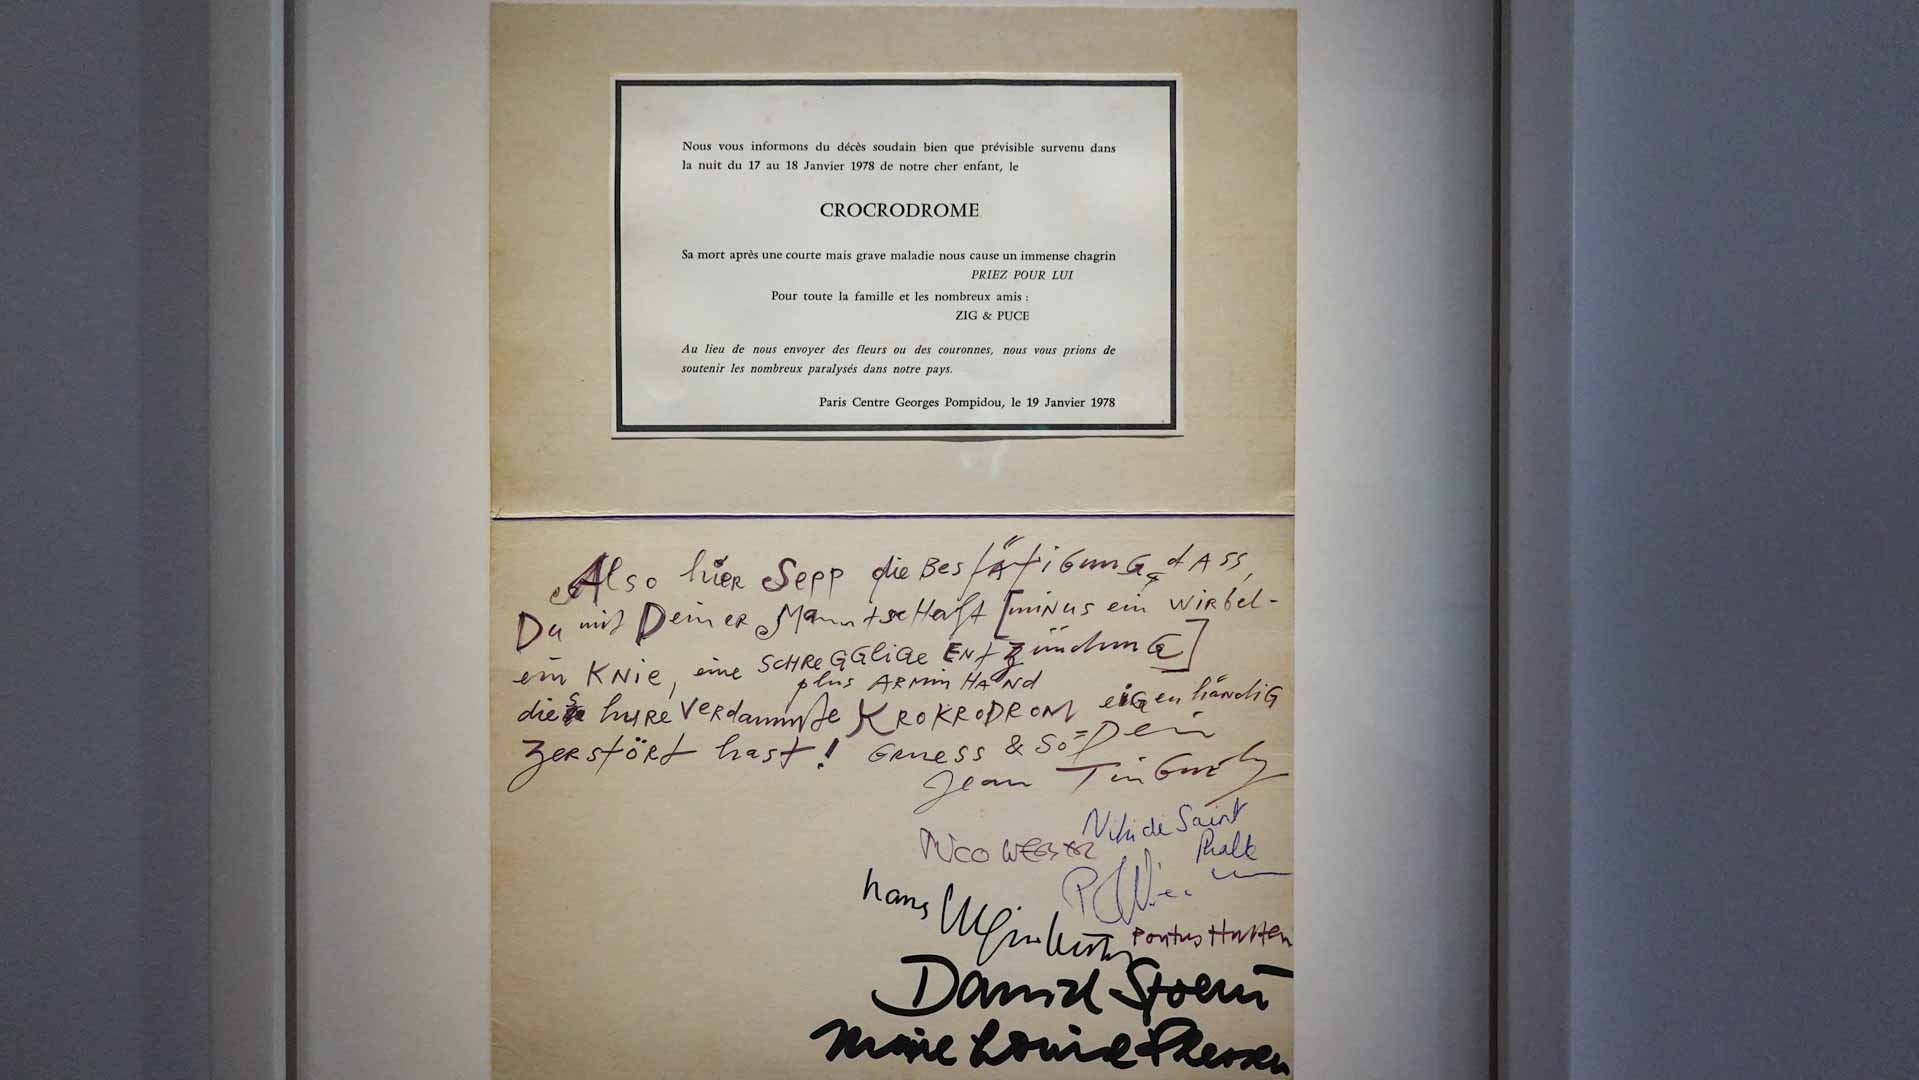 Nous vous informons du décès soudain bien que prévisible survenu dans
la nuit du 17 au 18 Janvier 1978 de notre cher enfant, le
CROCRODROME
Sa mort après une courte mais grave maladie nous cause un immense chagrin
PRIEZ POUR LUI
Pour toute la famille et les nombreux amis :
ZIG & PUCE
Au lieu de nous envoyer des fleurs ou des couronnes, nous vous prions de
soutenir les nombreux paralysés dans notre pays.
Paris Centre Georges Pompidou, le 19 Janvier 1978
Also hier Sepp die Bestätigung dass,
Du mit Deiner Manntschaft [minus ein wirbel-
ein Knie, eine SCHREGGliGe Entzündung]
plus ARMin HAND
die hure verdammte KROKRODROM eigenhändig
zerstört hast! Gruess & So = Dein
Jean Tinguely
Niki de Saint
Phalle
Rico Weber
hans
Pontus Hulten
Daniel Spoerri
Marie Louise